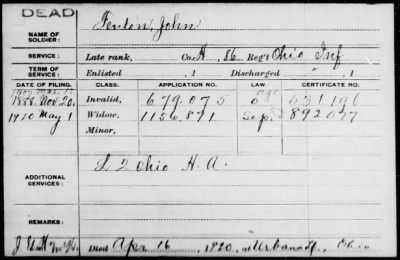 DEAD
NAME OF SOLDIER: Fenton, John
SERVICE: Late rank, Co. H, 86 Reg't Ohio Inf.
TERM OF SERVICE: Enlisted , 1 Discharged , 1
DATE OF FILING. CLASS. APPLICATION NO. LAW. CERTIFICATE NO.
1888 Nov. 20. Invalid, 679.075
1920 May 1 Widow, 1156.871 Sep. 892077
Minor,
ADDITIONAL SERVICES: L 2 Ohio H. A.
REMARKS:
Died Apr. 16, 1920, at Urbana, Ohio